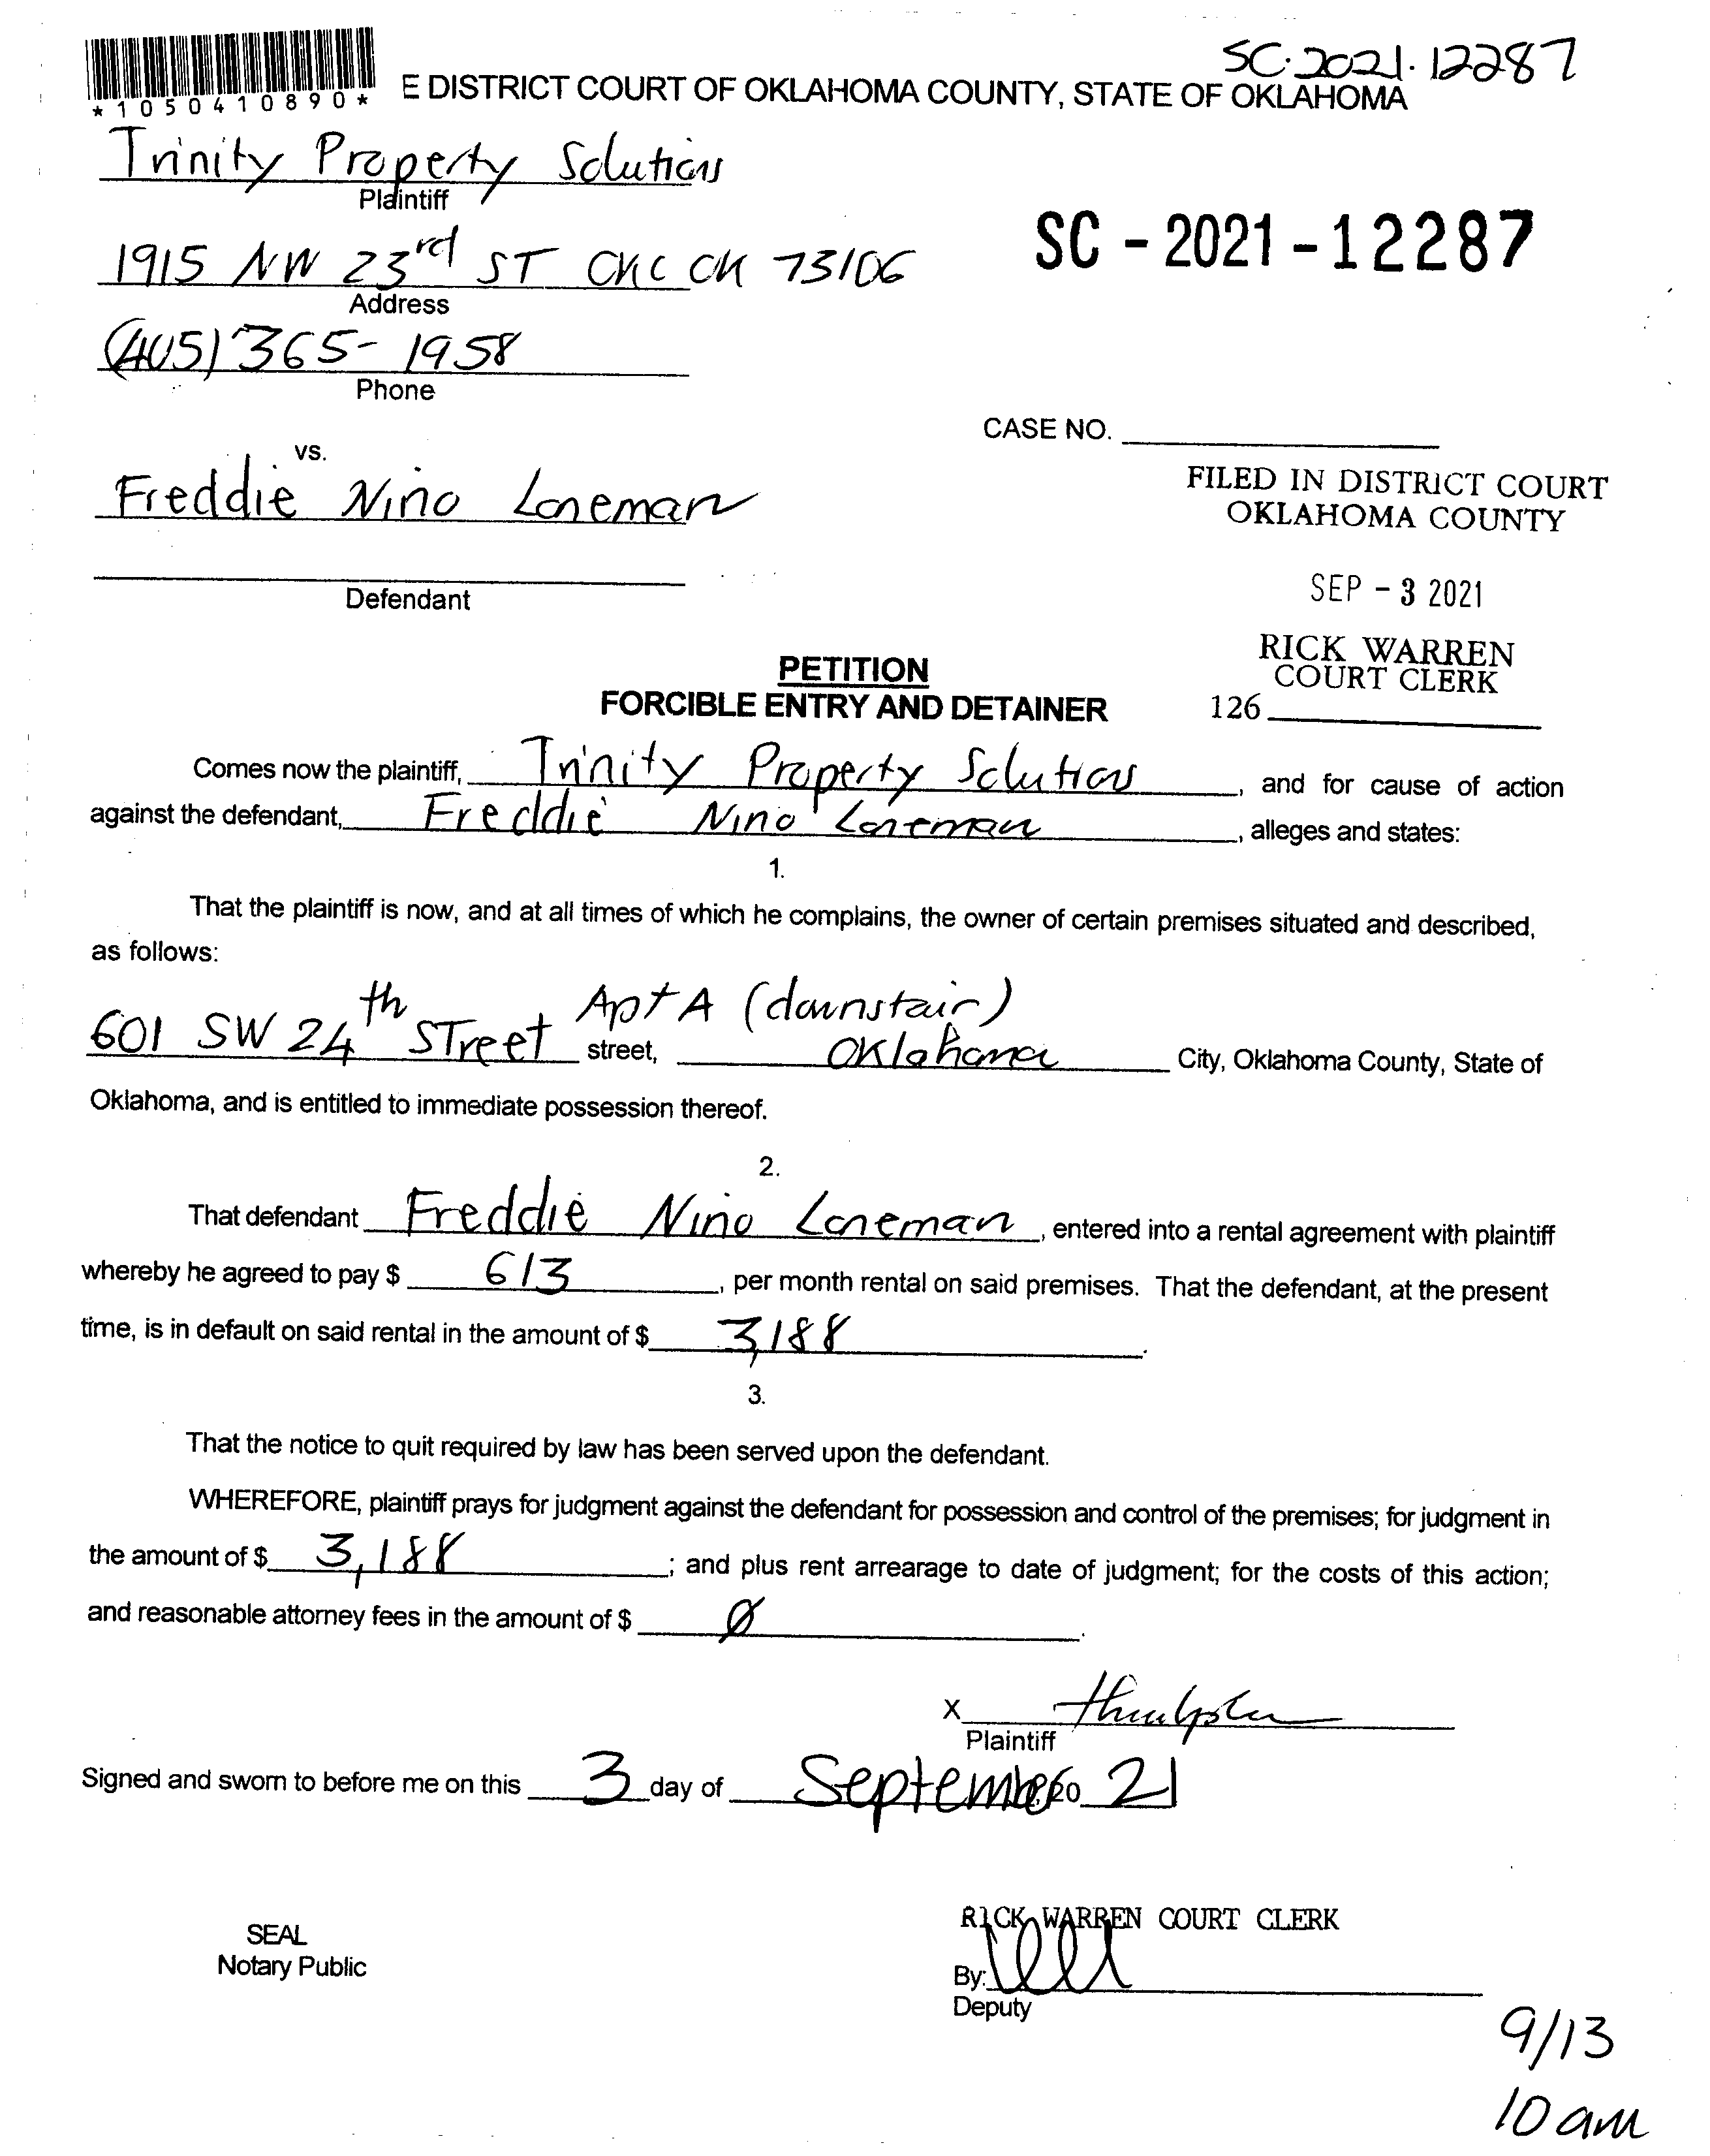 SC-2021-12287
*1050410890*
E DISTRICT COURT OF OKLAHOMA COUNTY, STATE OF OKLAHOMA
Trinity Property Solutions
Plaintiff
1915 NW 23rd ST OKC OK 73106
SC-2021-12287
Address
(405) 365-1958
Phone
CASE NO.
vs.
Freddie Nino Loneman
FILED IN DISTRICT COURT
OKLAHOMA COUNTY
Defendant
SEP - 3 2021
RICK WARREN
COURT CLERK
126
PETITION
FORCIBLE ENTRY AND DETAINER
Comes now the plaintiff, Trinity Property Solutions, and for cause of action
against the defendant, Freddie Nino Loneman, alleges and states:
1.
That the plaintiff is now, and at all times of which he complains, the owner of certain premises situated and described,
as follows:
601 SW 24th STreet Apt A (downstair) street, Oklahoma City, Oklahoma County, State of
Oklahoma, and is entitled to immediate possession thereof.
2.
That defendant Freddie Nino Loneman, entered into a rental agreement with plaintiff
whereby he agreed to pay $ 613, per month rental on said premises. That the defendant, at the present
time, is in default on said rental in the amount of $ 3,188.
3.
That the notice to quit required by law has been served upon the defendant.
WHEREFORE, plaintiff prays for judgment against the defendant for possession and control of the premises; for judgment in
the amount of $ 3,188; and plus rent arrearage to date of judgment; for the costs of this action;
and reasonable attorney fees in the amount of $ Ø.
X
Plaintiff
Signed and sworn to before me on this 3 day of September, 20 21
RICK WARREN COURT CLERK
SEAL
Notary Public
By:
Deputy
9/13
10 am